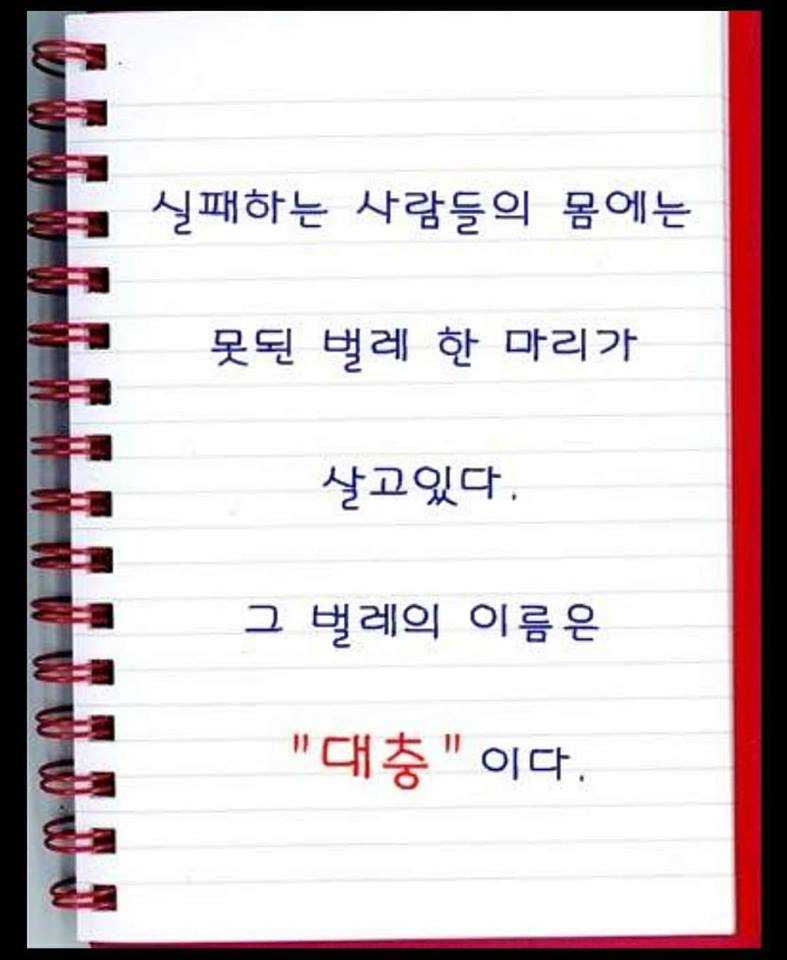 실패하는 사람들의 몸에는
못된 벌레 한 마리가
살고있다.
그 벌레의 이름은
"대충" 이다.